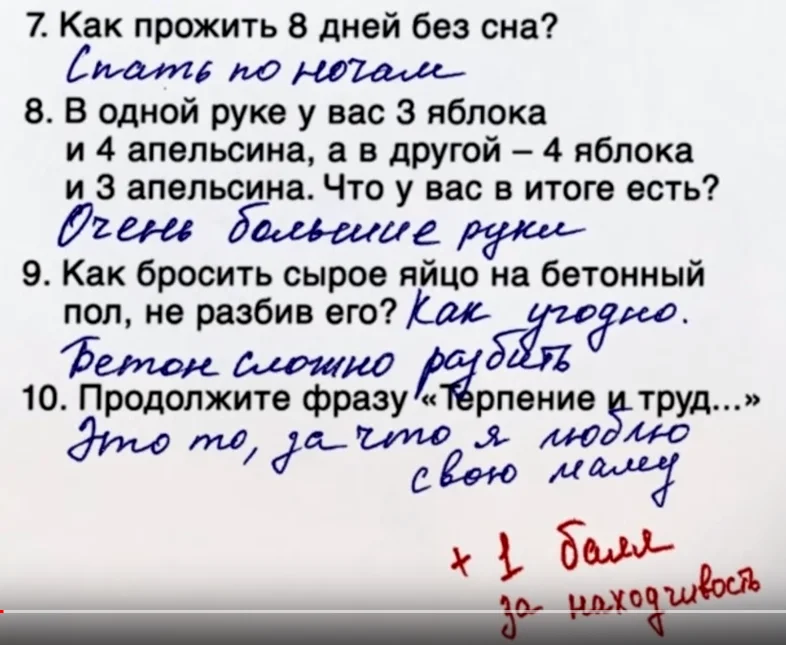 7. Как прожить 8 дней без сна?
Спать по ночам
8. В одной руке у вас 3 яблока
и 4 апельсина, а в другой – 4 яблока
и 3 апельсина. Что у вас в итоге есть?
Очень большие руки
9. Как бросить сырое яйцо на бетонный
пол, не разбив его? Как угодно.
Бетон сложно разбить
10. Продолжите фразу «Терпение и труд...»
Это то, за что я люблю
свою маму
+ 1 балл
за находчивость